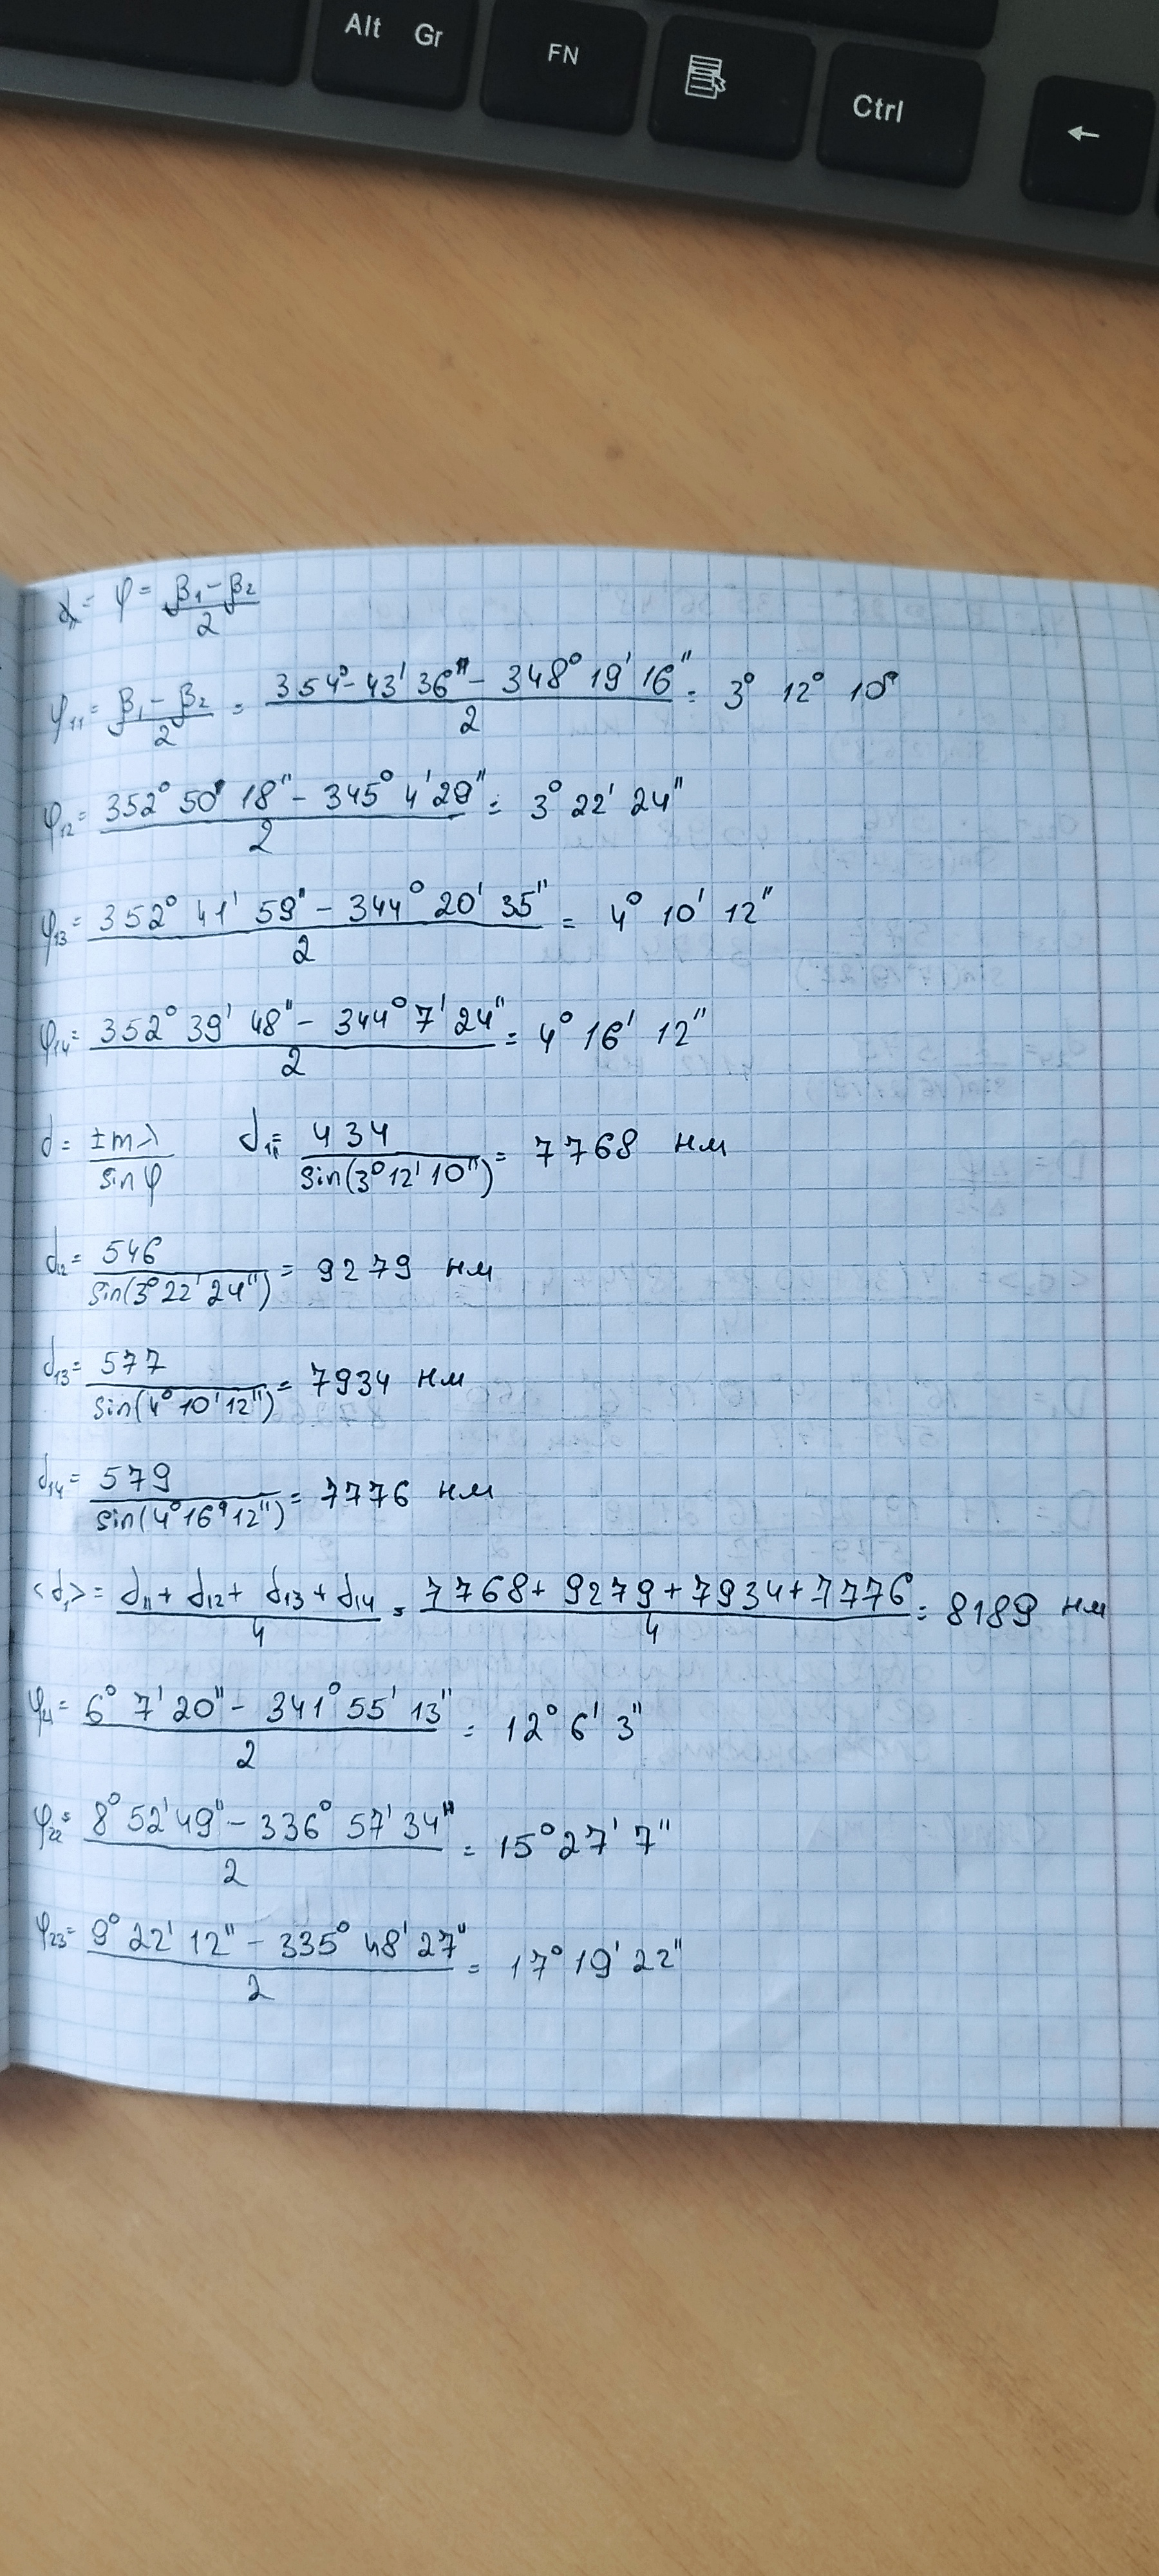 Alt Gr
FN
Ctrl
←
α = φ = β₁ - β₂ / 2
φ₁₁ = β₁ - β₂ / 2 = 354° 43' 36" - 348° 19' 16" / 2 = 3° 12° 10°
φ₁₂ = 352° 50' 18" - 345° 4' 29" / 2 = 3° 22' 24"
φ₁₃ = 352° 41' 59" - 344° 20' 35" / 2 = 4° 10' 12"
φ₁₄ = 352° 39' 48" - 344° 7' 24" / 2 = 4° 16' 12"
d = ±mλ / sin φ d₁₁ = 434 / sin(3° 12' 10") = 7768 нм
d₁₂ = 546 / sin(3° 22' 24") = 9279 нм
d₁₃ = 577 / sin(4° 10' 12") = 7934 нм
d₁₄ = 579 / sin(4° 16' 12") = 7776 нм
<d₁> = d₁₁ + d₁₂ + d₁₃ + d₁₄ / 4 = 7768 + 9279 + 7934 + 7776 / 4 = 8189 нм
φ₂₁ = 6° 7' 20" - 341° 55' 13" / 2 = 12° 6' 3"
φ₂₂ = 8° 52' 49" - 336° 57' 34" / 2 = 15° 27' 7"
φ₂₃ = 9° 22' 12" - 335° 48' 27" / 2 = 17° 19' 22"